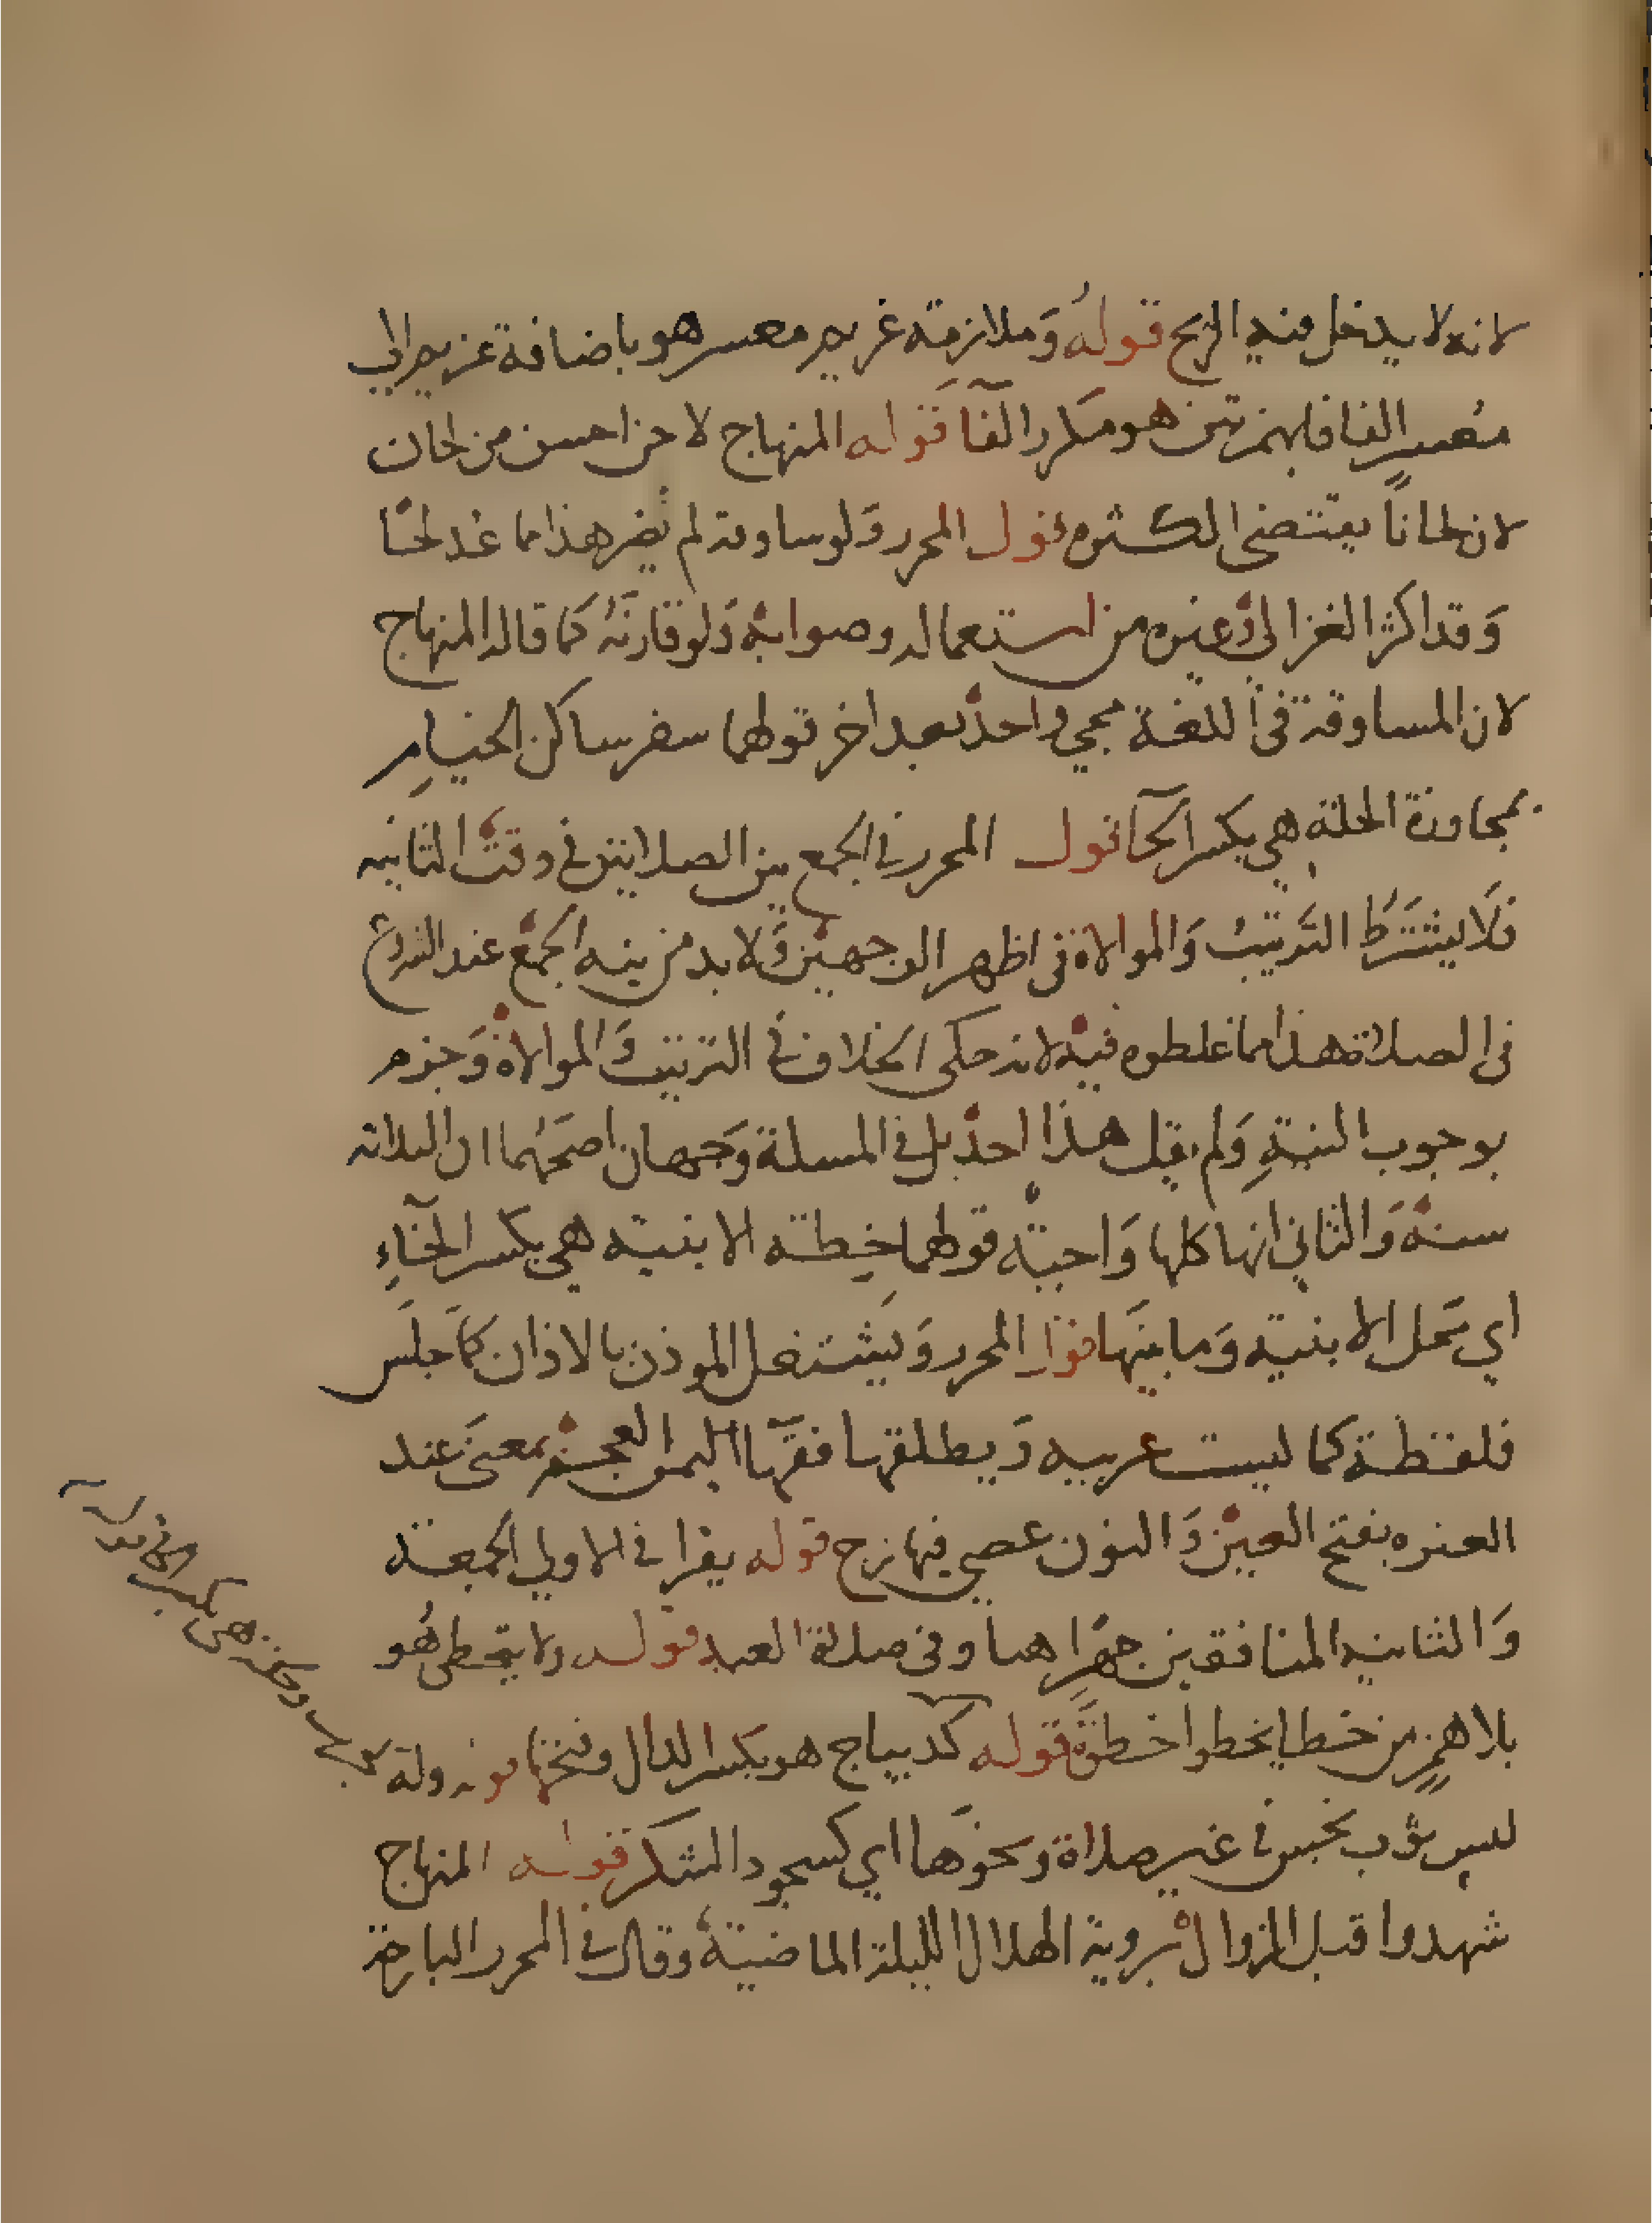 لانه لا يدخل فيه الريح قوله وَملازمة غريم معسر هو باضافة غريم الي
معسر الفافا بهمزتين هو مكرر الفآ قوله المنهاج لاحن احسن من لحان
لان لحانًا يقتضى الكثره قول المحرر وَلو ساوقه لم يضر هذا مما عُد لحنًا
وَقد اكثر الغزالي وغيره من استعماله وصوابه وَلو قارنَهُ كما قاله المنهاج
لان المساوقة في اللغة مجي واحد بعد اخر قولهما سفر ساكن الخيام
بمجاوزة الحلة هي بكسر الحآ قول المحرر في الجمع بين الصلاتين في وقت الثانيه
فلَا يشترَطُ الترتيب وَالموالاة في اظهر الوجهين وَلا بد من نيه الجمع عند الشروع
في الصلاة هذا مما غلطوه فيه لانه حكى الخلاف في الترتيب وَالموالاة وَجزم
بوجوب النيةِ وَلم يقل هذا احد بل في المسلة وَجهان اصحهُما ان الثلاثه
سنة وَالثاني انها كلها وَاجبة قولهما خِطة الابنية هي بكسر الخآءِ
اي محل الابنية وَما بينها قول المحرر وَيشتغل الموذن بالاذان كمَا جلس
فلفظة كما ليست عربيه وَيطلقها فقهآ العجم بمعنى عند
العنزه بفتح العين وَالنون عصى فيها زج قوله يقرا في الاولي الجمعة
وَالثانيه المنافقين جهرًا هنا وفي صلاة العيد قوله ولا يتخطى هُو
بلا همزٍ من خطا يخطوا خطوَة قوله كديباج هو بكسر الدال وفتحها قوله وله
لبس ثوب نجس في غير صلاة وَنحوَها اي كسجود الشكر قوله المنهاج
شهدوا قبل الزوال بروية الهلال الليلة الماضية وقال في المحرر البارحة